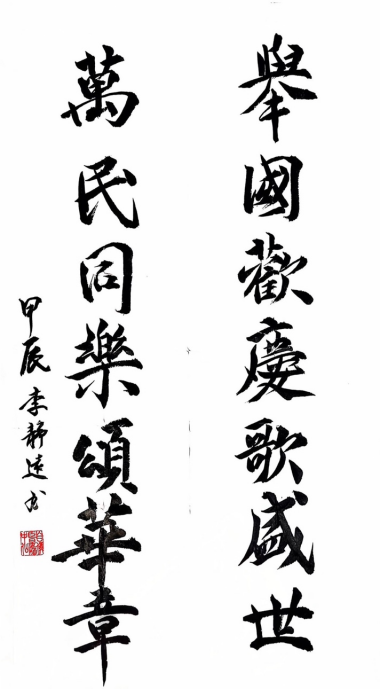 舉國歡慶歌盛世
萬民同樂頌華章
甲辰 李靜遠书